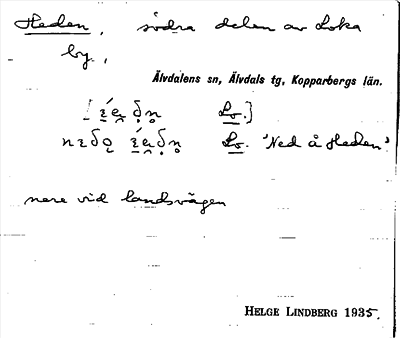 Heden, södra delen av Loka
by.,
Älvdalens sn, Älvdals tg, Kopparbergs län.
Lo.]
Lo. 'Ned å Heden'
nere vid landsvägen
HELGE LINDBERG 1935.